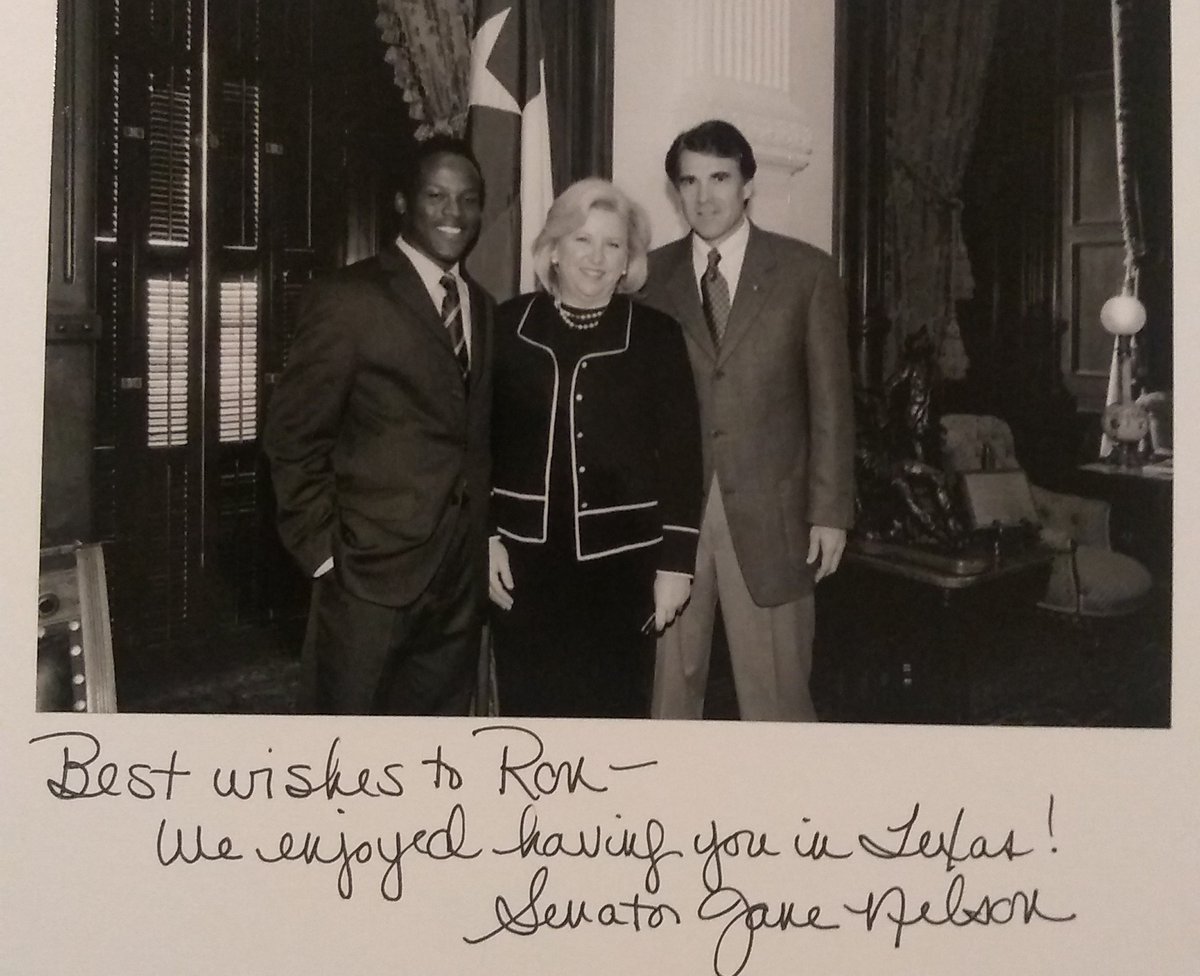 Best wishes to Ron—
We enjoyed having you in Texas!
Senator Jane Nelson